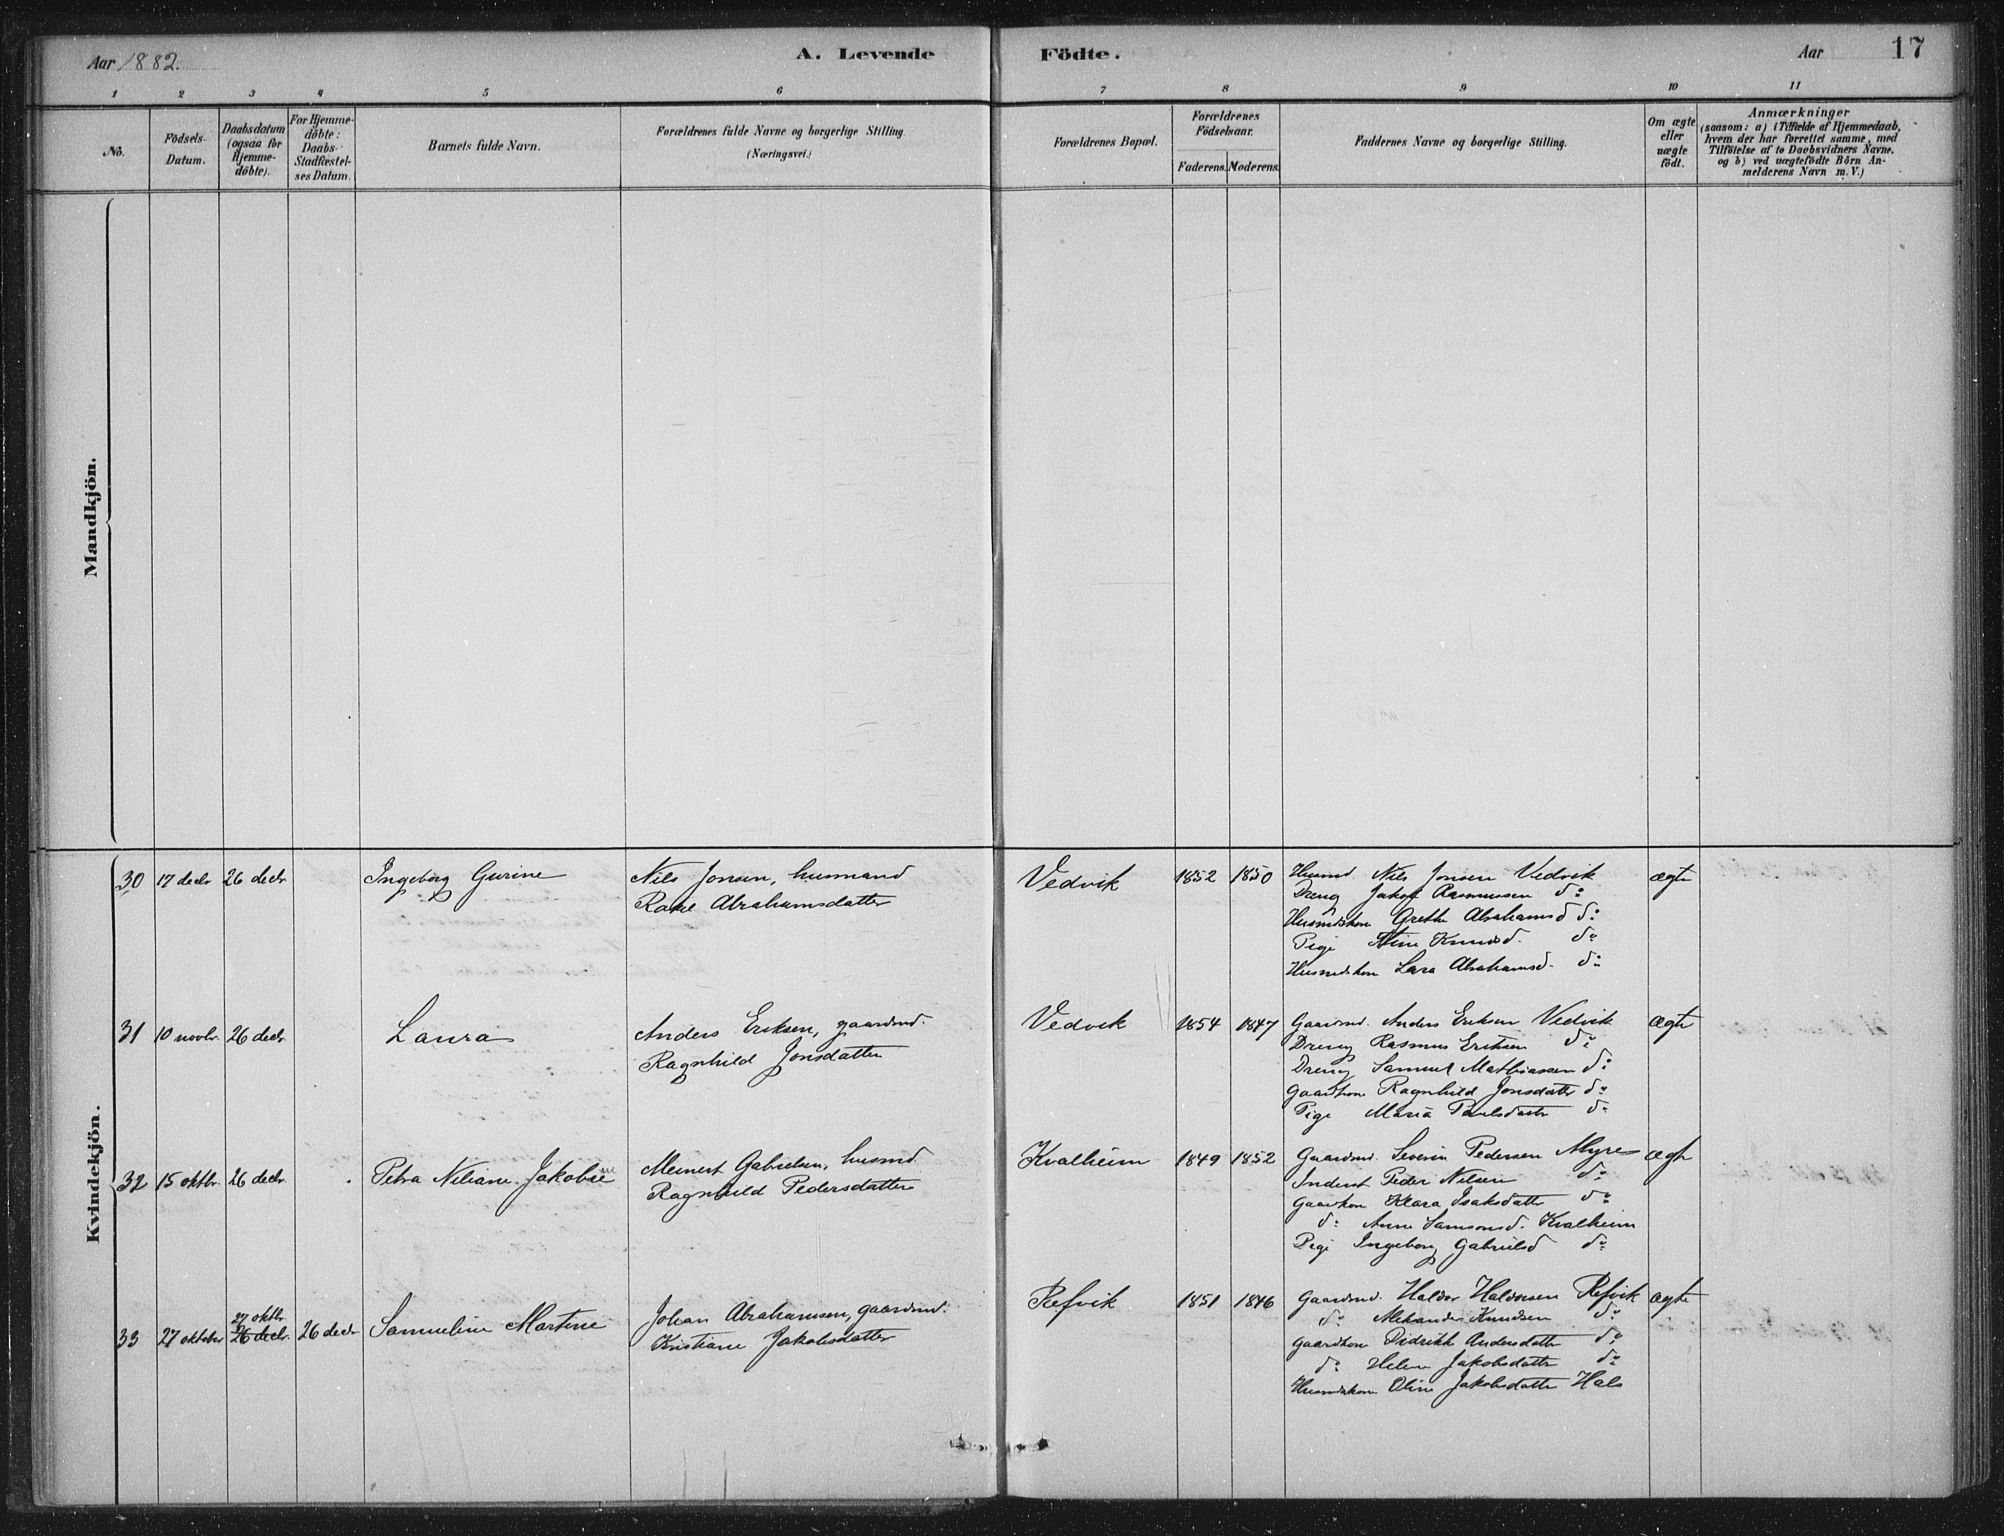 Aar 1882.
A. Levende Födte.
Aar
17
1 2 3 4 5 6 7 8 9 10 11
No.
Födsels-
Datum.
Daabsdatum
(ogsaa for
Hjemme-
döbte).
For Hjemme-
döbte:
Daabs-
Stadfæstel-
ses Datum.
Barnets fulde Navn.
Forældrenes fulde Navne og borgerlige Stilling.
(Næringsvei.)
Forældrenes Bopæl.
Forældrenes
Födselsaar.
Faderens. Moderens.
Faddernes Navne og borgerlige Stilling.
Om ægte
eller
uægte
født.
Anmærkninger
(saasom: a) i Tilfælde af Hjemmedaab,
hvem der har forrettet samme, med
Tilföielse af to Daabsvidners Navne,
og b) ved uægtefödte Börn An-
melderens Navn m.V.)
Mandkjön.
Kvindekjön.
30 17 decbr 26 decbr Ingeborg Gurine
Nils Jonsen, husmand
Rakel Abrahamsdatter
Vedvik 1852 1850
Husmd Nils Jonsen Vedvik
Dreng Jakob Rasmussen do
Husmdskone Grethe Abrahamsd do
Pige Stine Knudsd. do
Husmdskone Lara Abrahamsd. do
ægte
31 10 novbr. 26 decbr Laura
Anders Eriksen, gaardmd.
Ragnhild Jonsdatter
Vedvik 1854 1847
Gaardmd. Anders Eriksen Vedvik
Dreng Rasmus Eriksen do
Dreng Samuel Mathiassen do
Gaardkone Ragnhild Jonsdatter do
Pige Maria Paulsdatter do
ægte
32 15 oktbr. 26 decbr. Petra Niliane Jakobine
Meinert Gabrielsen, husmd.
Ragnhild Pedersdatter
Kvalheim 1849 1852
Gaardmd. Severin Pedersen Myre
Inderst Peder Nilsen do
Gaardkone Klara Isaksdatter do
do Anne Samsonsd. Kvalheim
Pige Ingeborg Gabrielsd do
ægte
33 27 oktober 27 oktbr. 26 decbr. 26 decbr Samueline Martine
Johan Abrahamsen, gaardmd.
Kristiane Jakobsdatter
Refvik 1851 1846
Gaardmd. Haldor Haldorsen Refvik
do Knudsen do
Gaardkone Didrikke Andersdatter do
do Helene Jakobsdatter do
Husmdskone Oline Jakobsdatter Hals
ægte